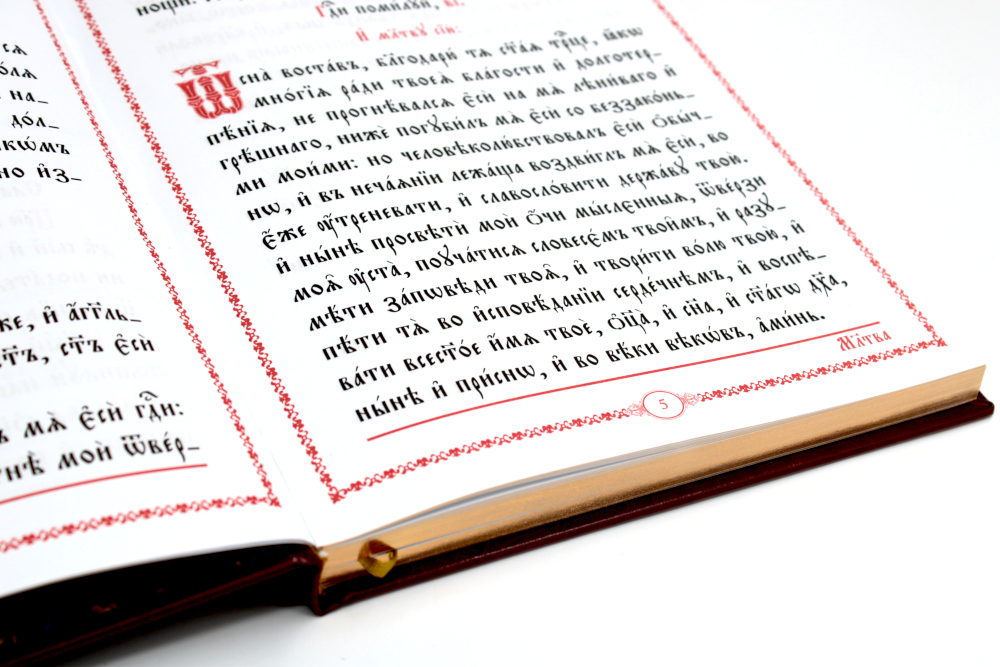 ся
на_
дол_
но и҆з_
же, и҆ а҆гг҃ль_
ст҃ъ є҆сѝ
мѧ̀ є҆сѝ гдⷭ҇и:
мои̑ ѿве́р_
гдⷭ҇и поми́лꙋй, в҃і.
И҆ мл҃твꙋ сїю̀:
Ѿ сна̀ воста́въ, бл҃годарю́ тѧ ст҃а́ѧ трⷪ҇це, ꙗ҆́кѡ
мно́гїѧ ра́ди твоеѧ̀ бла́гости и҆ долготер_
пѣ́нїѧ, не прогнѣ́валсѧ є҆сѝ на мѧ̀ лѣни́ваго и҆
грѣ́шнаго, нижѐ погꙋби́лъ мѧ̀ є҆сѝ со беззако́нь_
ми мои́ми: но человѣколю́бствовалъ є҆сѝ ѻ҆бы́ч_
нѡ, и҆ въ неча́ѧнїи лежа́ща воздви́глъ мѧ̀ є҆сѝ, во
є҆́же ᲂу҆́треневати, и҆ славосло́вити держа́вꙋ твою̀.
и҆ ны́нѣ просвѣтѝ моѝ ѻ҆́чи мы́слєнныѧ, ѿве́рзи
моѧ̑ ᲂу҆ста̀, поꙋча́тисѧ словесє́мъ твои̑мъ, и҆ разꙋ_
мѣ́ти за́пѡвѣди твоѧ̑, и҆ твори́ти во́лю твою̀, и҆
пѣ́ти тѧ̀ во и҆сповѣ́данїи серде́чнѣмъ, и҆ воспѣ_
ва́ти всест҃о́е и҆́мѧ твоѐ, ѻ҆ц҃а̀, и҆ сн҃а, и҆ ст҃а́гѡ дх҃а,
ны́нѣ и҆ при́снѡ, и҆ во вѣ́ки вѣкѡ́въ, а҆ми́нь.
Мл҃тва
5